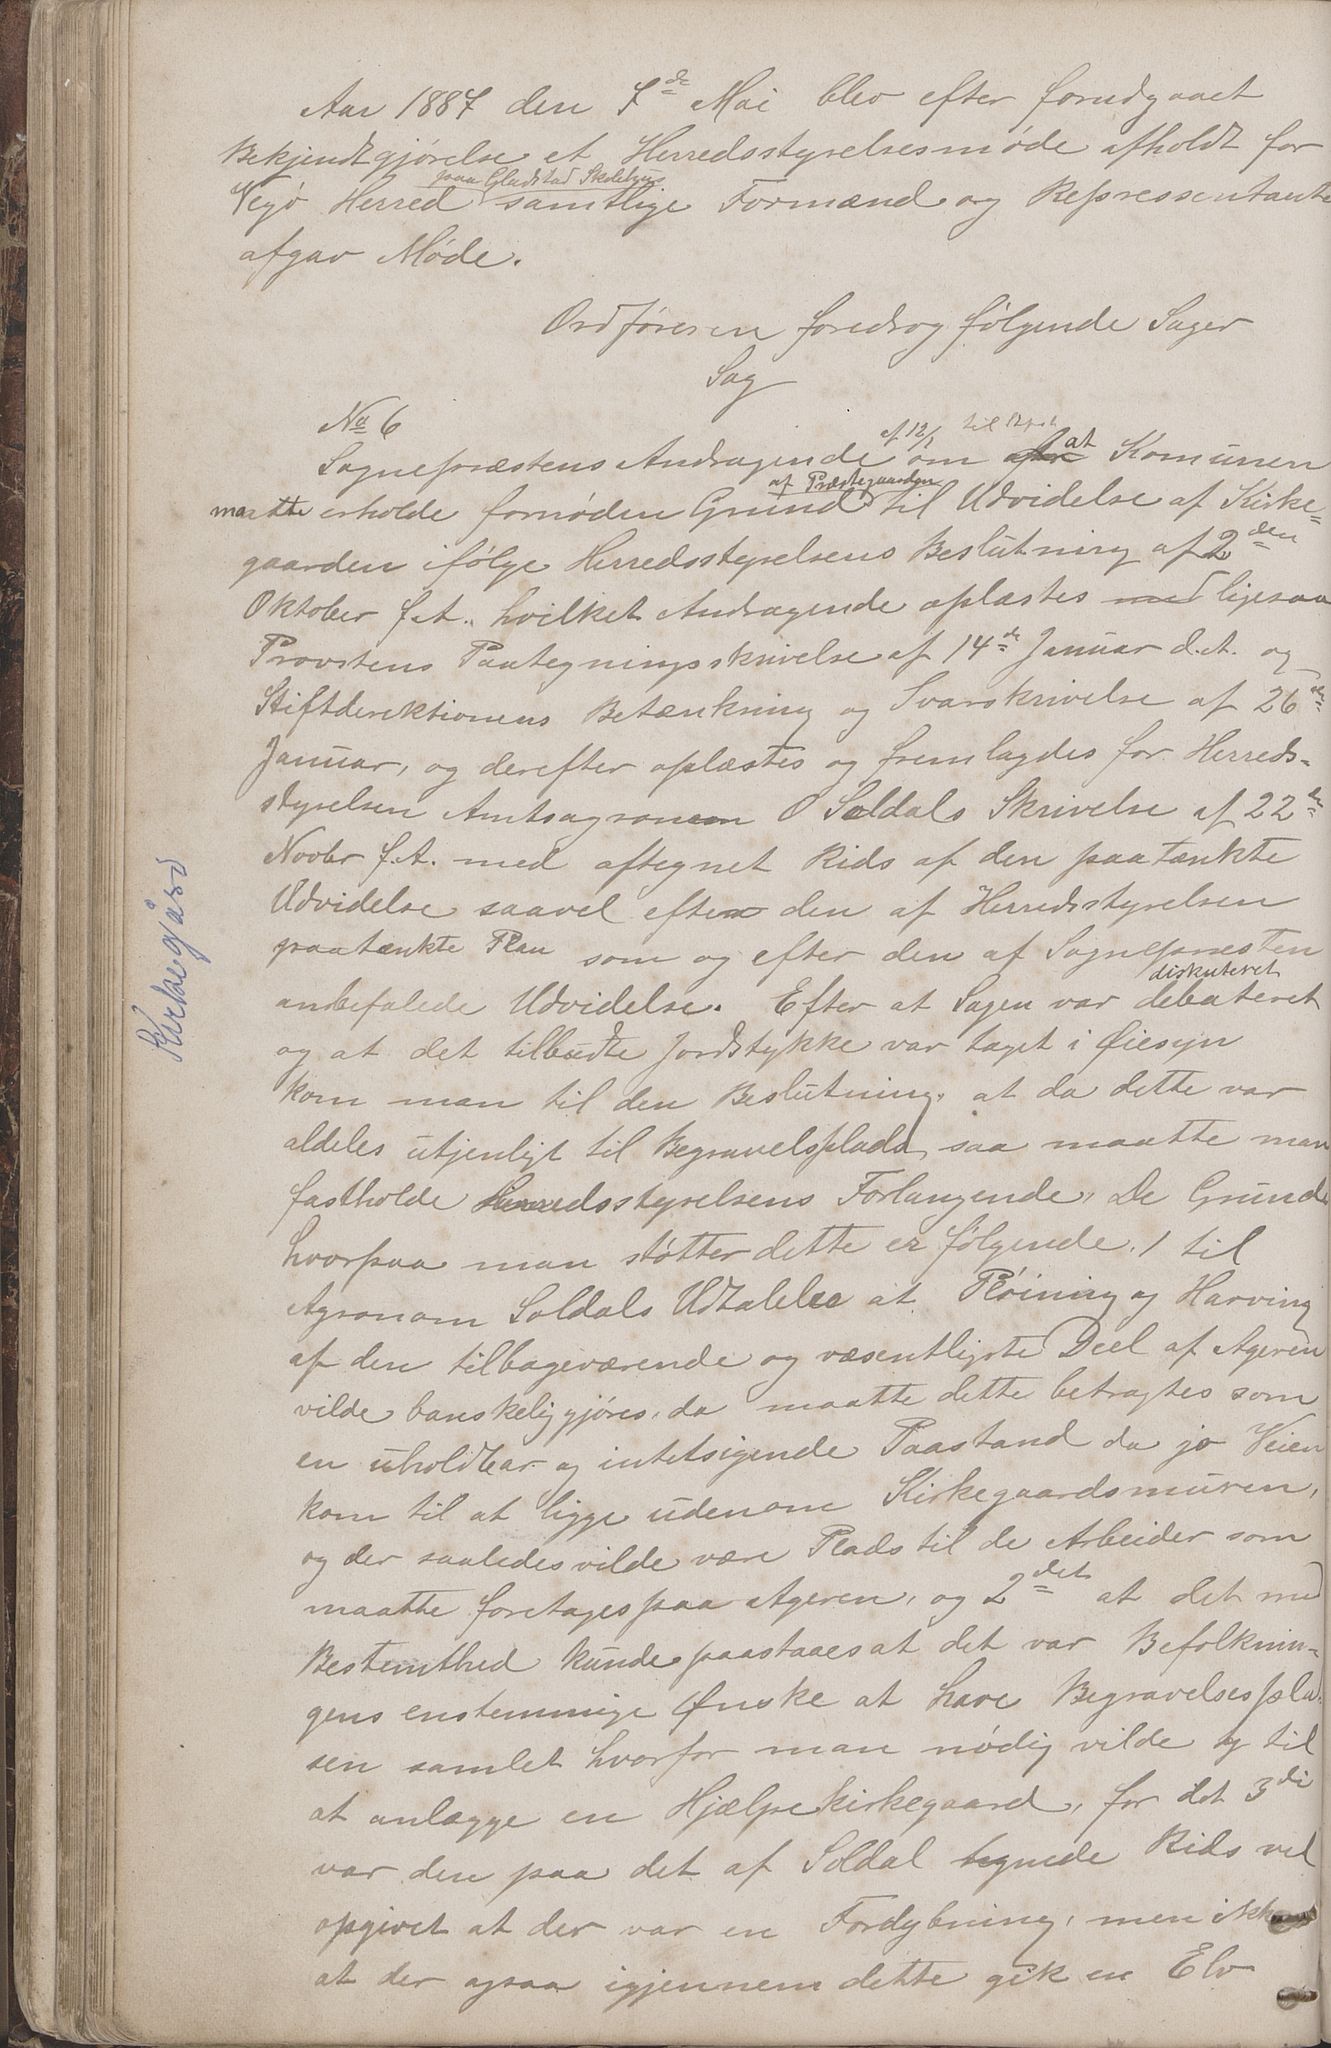 Aar 1887 den 7de Mai blev efter forudgaaet
Bekjendtgjørelse et Herredsstyrelsesmøde afholdt for
paa Gladstad Skolehus
Vegø Herred samtlige Formænd og Repræssentante
afgav Møde.
Ordføreren foredrog følgende Sager
Sag
No 6
af 12/1
Sognepræstens Andragende om at Komunen
af Præstegaarden
maatte erholde fornøden Grund til Udvidelse af Kirke=
gaarden ifølge Herredsstyrelsens Beslutning af 2den
Oktober f.A. hvilket Andragende oplæstes med ligesaa
Provstens Paategningsskrivelse af 14de Januar d.A. og
Stiftdirektionens Betænkning og Svarskrivelse af 26de
Januar, og derefter oplæstes og fremlagdes for Herreds-
styrelsen Amtsagronom O Soldals Skrivelse af 22de
Novbr f.A. med aftegnet Rids af den paatænkte
Udvidelse saavel efter den af Herredsstyrelsen
paatænkte Plan som og efter den af Sognepræsten
diskuteret
anbefalede Udvidelse. Efter at Sagen var debateret
og at det tilbudte Jordstykke var taget i Øiesyn
kom man til den Beslutning, at da dette var
aldeles utjenligt til Begravelsplads, saa maatte man
fastholde Herredsstyrelsens Forlangende, De Grunde
hvorpaa man støtter dette er følgende. 1 til
Agronom Soldals Udtalelse at Pløining og Harving
af den tilbageværende og væsentligste Deel af Ageren
vilde vanskeliggjøres, da maatte dette betragtes som
en uholdbar og intetsigende Paastand da jo Veien
kom til at ligge udenom Kirkegaardsmuren,
og der saaledes vilde være Plads til de Arbeider som
maatte foretages paa Ageren, og 2det at det med
Bestemthed kunde paastaaes at det var Befolknin-
gens enstemmige Ønske at have Begravelsespla-
sen samlet hvorfor man nødig vilde ty til
at anlægge en Hjælpekirkegaard, for det 3di
var den paa det af Soldal tegnede Rids vel
opgivet at der var en Fordybning, men ikke
at der ogsaa igjennem dette gik en Elv
Kirkegård